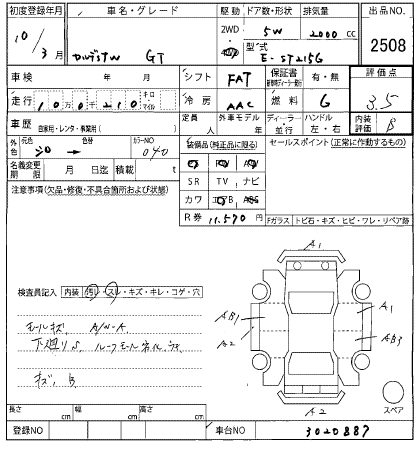 初度登録年月 車名・グレード 駆動 ドア数・形状 排気量 出品NO.
10/3月 GT 2WD 5W 2000cc 2508
型式 E-ST215G
車検 年 月 シフト FAT 保証書 有・無 評価点
走行 100千210 キロ マイル 冷房 AAC 燃料 G 3.5
車歴 自家用・レンタ・事業用( ) 定員 人 外車モデル 年 ディーラー・並行 ハンドル 左・右 内装評価 B
外色 元色 シロ → 色替 カラーNO 040 装備品(純正品に限る) セールスポイント(正常に動作するもの)
名義変更期限 月 日迄 積載 t
注意事項(欠品・修復・不具合箇所および状態) SR TV ナビ
カワ エアB ABS
R券 11,570 Fガラス トビ石・キズ・ヒビ・ワレ・リペア跡
A1
検査員記入 内装 汚レ・スレ・キズ・キレ・コゲ・穴
AB1 A1
モールキズ A/W-A A2 AB3
下廻りS ルーフモール劣化
キズ、B
A2 スペア
長さ cm 幅 cm 高さ cm
登録NO 車台NO 3020887